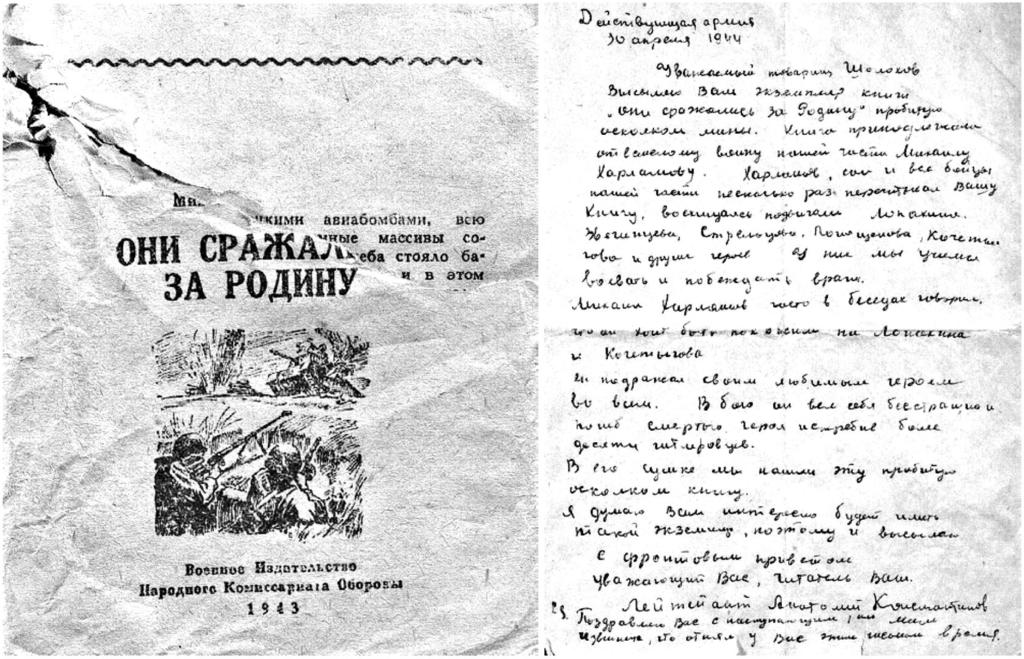 цкими авиабомбами, всю
нные массивы со-
ОНИ СРАЖАЛ
неба стояло ба-
ЗА РОДИНУ
и в этом
Военное Издательство
Народного Комиссариата Обороны
1943
Действующая армия
30 апреля 1944
Уважаемый товарищ Шолохов
Высылаю Вам экземпляр книги
„Они сражались за Родину" пробитую
осколком мины. Книга принадлежала
отважному воину нашей части Михаилу
Харламову. Харламов, сам и все бойцы
нашей части несколько раз перечитывал Вашу
Книгу, восхищаясь подвигами Лопахина,
Звягинцева, Стрельцова, Поприщенко, Кочеты
гова и других героев У них мы учимся
воевать и побеждать врага.
Михаил Харламов часто в беседах говорил,
что он хочет быть похожим на Лопахина
и Кочетыгова
Он подражал своим любимым героям
во всем. В бою он вел себя бесстрашно и
погиб смертью героя истребив более
десяти гитлеровцев.
В его сумке мы нашли эту пробитую
осколком книгу.
Я думаю Вам интересно будет иметь
такой экземпляр, поэтому и высылаю
С фронтовым приветом
уважающий Вас, читатель Ваш.
Лейтенант Анатолий Константинов
Поздравляю Вас с наступающим 1 ым мая
Извините, что отнял у Вас этим письмом время.